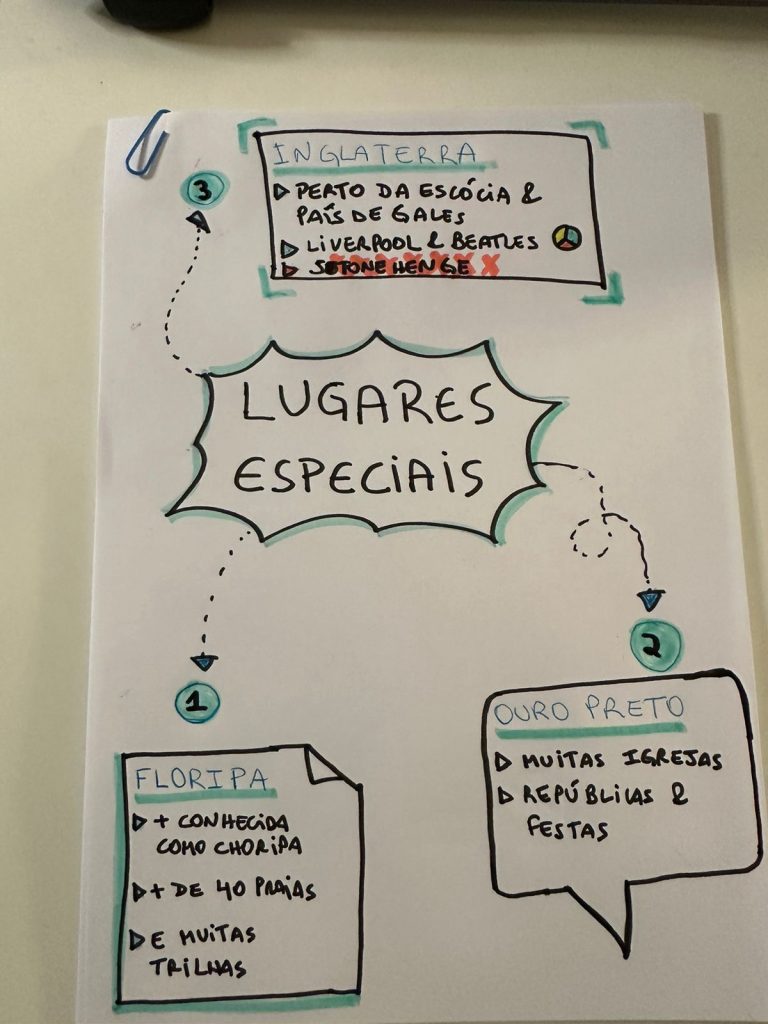 LUGARES
ESPECIAIS
1
FLORIPA
+ CONHECIDA
COMO CHORIPA
+ DE 40 PRAIAS
E MUITAS
TRILHAS
2
OURO PRETO
MUITAS IGREJAS
REPÚBLICAS &
FESTAS
3
INGLATERRA
PERTO DA ESCÓCIA &
PAÍS DE GALES
LIVERPOOL & BEATLES
SOTONEHENGE